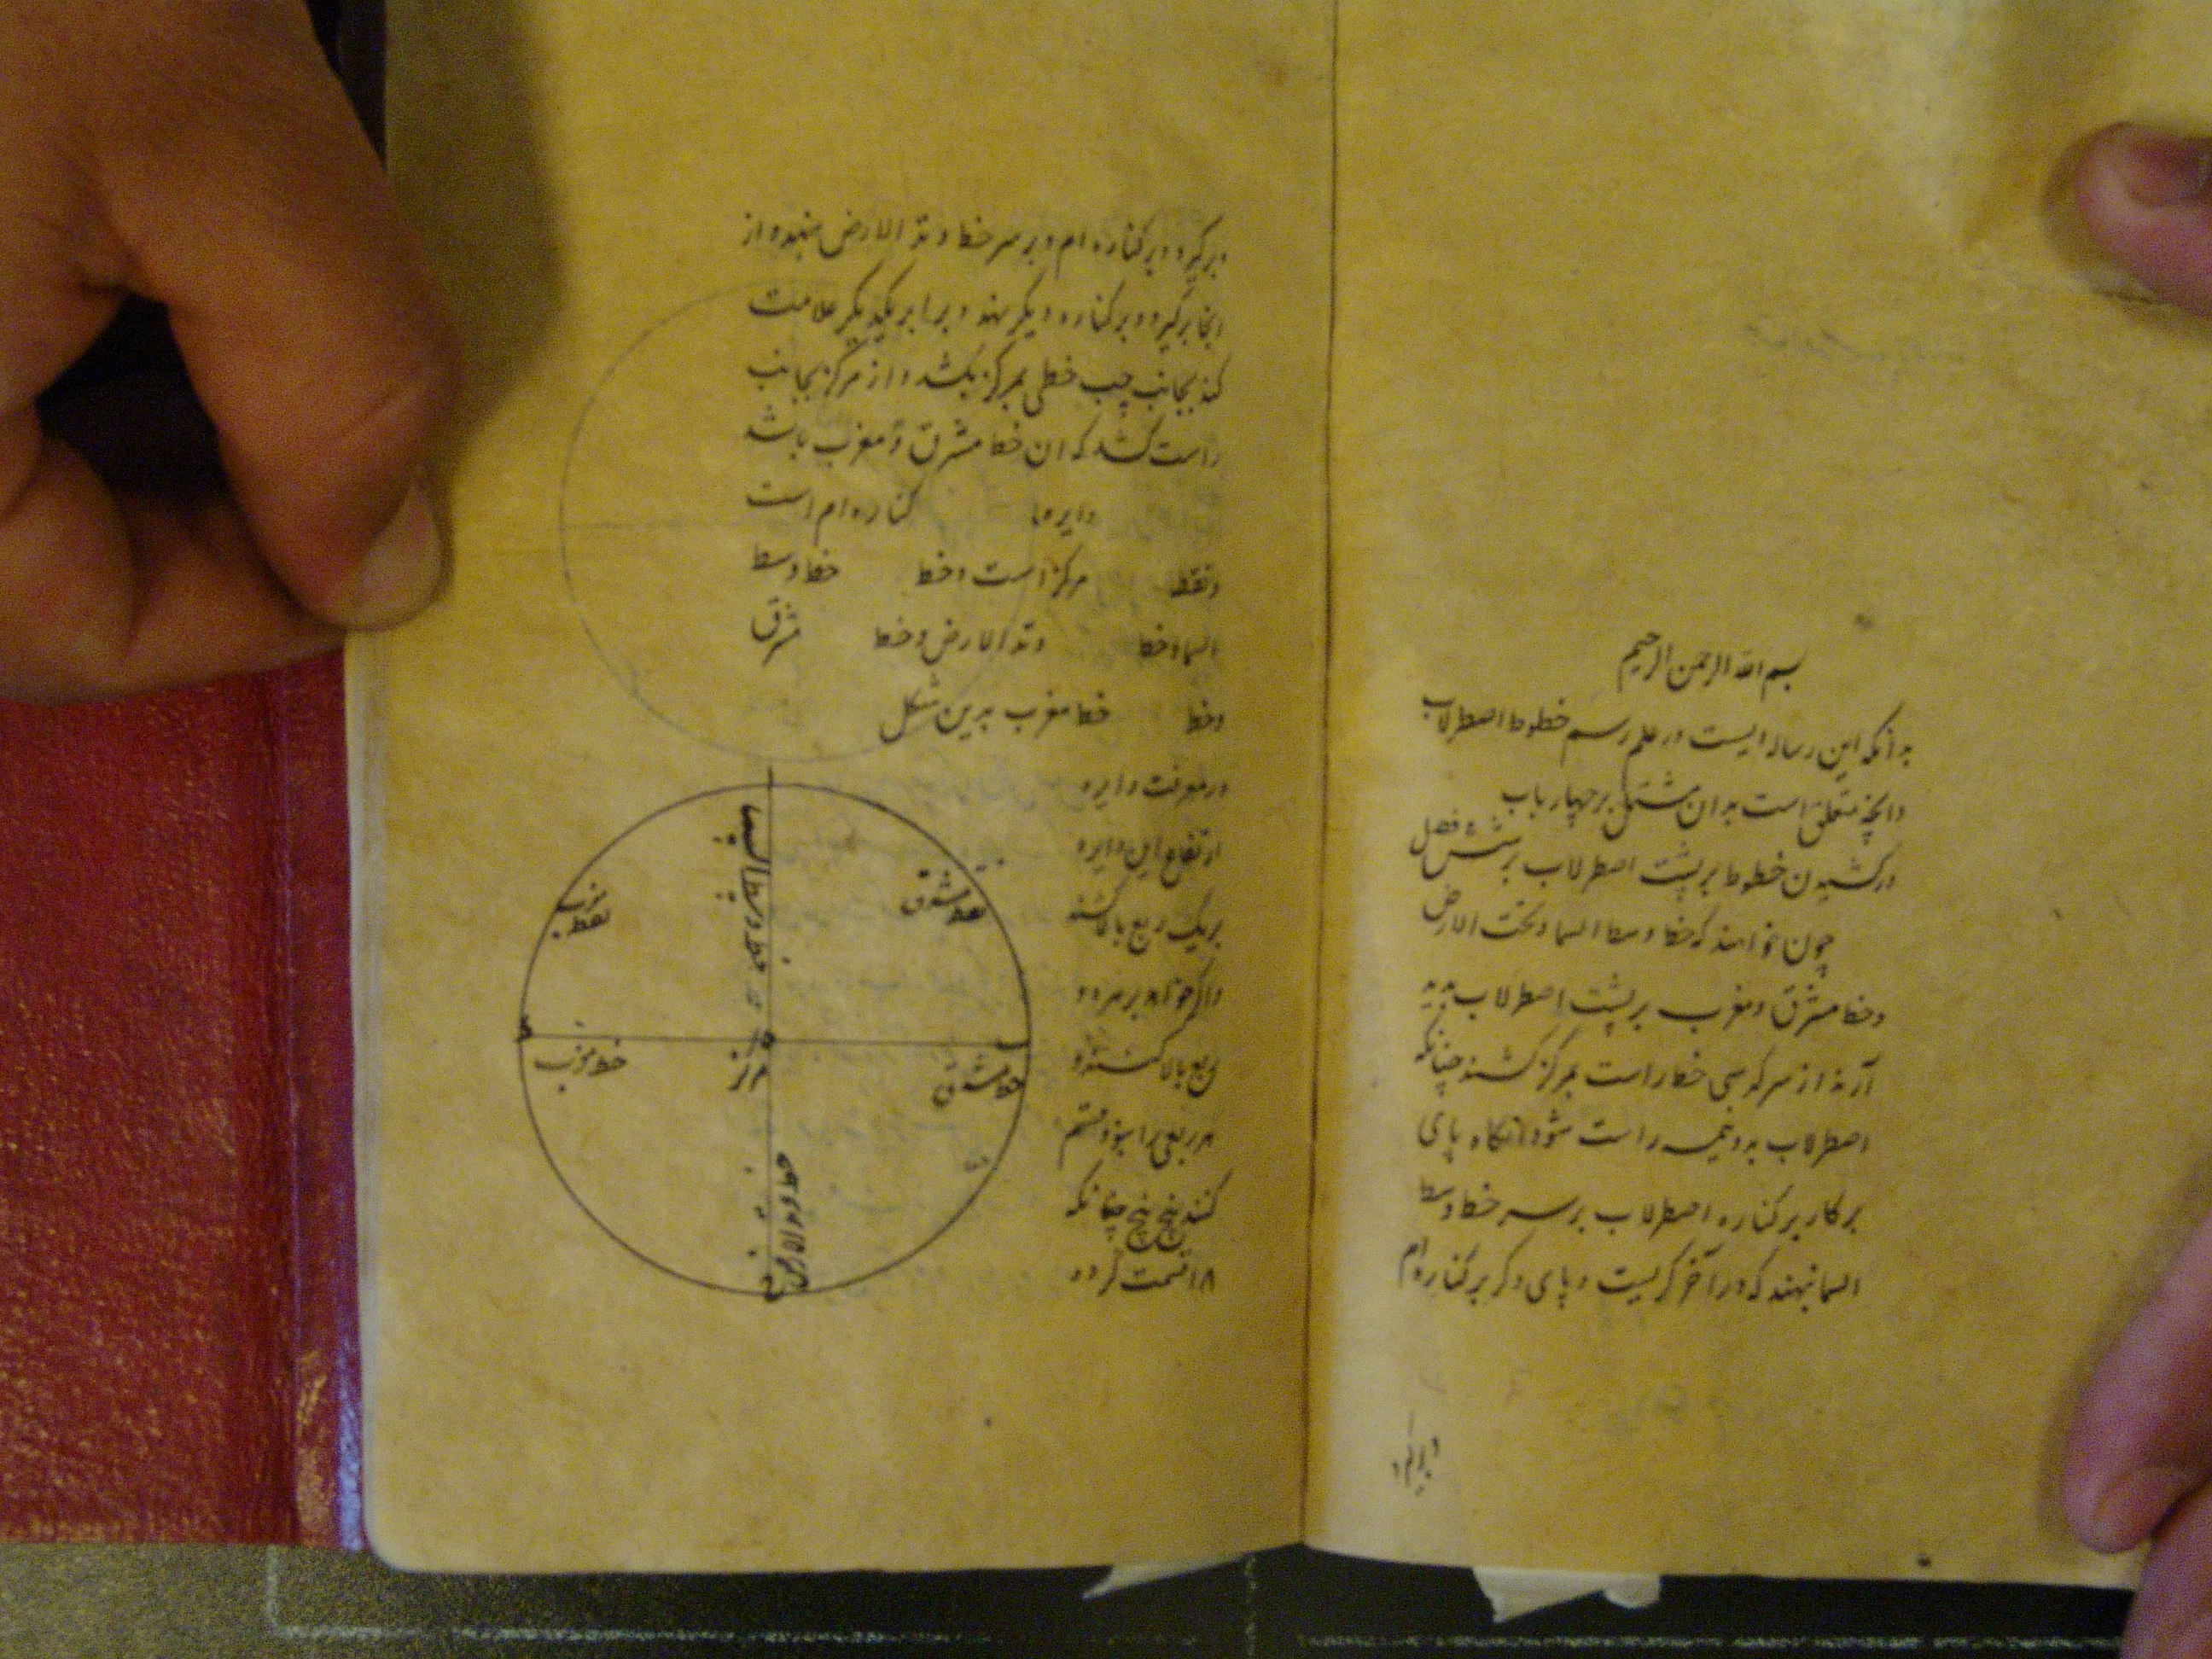 بسم الله الرحمن الرحیم
بدانکه این رساله ایست در علم رسم خطوط اصطرلاب
وانچه متعلق است بدان مشتمل بر چهار باب
در کشیدن خطوط بر پشت اصطرلاب بر شش فصل
چون خواهند که خط وسط السما و تحت الارض
و خط مشرق و مغرب بر پشت اصطرلاب پدید
آرند از سر کرسی خط راست بمرکز کشند چنانکه
اصطرلاب بدو نیمه راست شود آنگاه پای
پرکار بر کناره اصطرلاب بر سر خط وسط
السما نهند که در آخر کرسیست و پای دگر بر کناره ام
برگیرد و بر کناره ام و بر سر خط وتد الارض بنهد و از
انجا برگیرد و بر کناره دیگر نهد و برابر یکدیگر علامت
کند بجانب چپ خطی بمرکز بکشد و از مرکز بجانب
راست کشد که ان خط مشرق و مغرب باشد
دایره ما کناره ام است
و نقطه مرکز است و خط خط وسط
السما و خط وتد الارض و خط مشرق
و خط خط مغرب بدین شکل
در معرفت دایره
ارتفاع این دایره
بر یک ربع بالا کشند
و اگر خواهد بر هر دو
ربع بالا کشند و
هر ربعی را بنود قسم
کنند پنج پنج چنانکه
۱۸ قسمت گردد
نقطه مغرب
نقطه مشرق
خط مغرب
مرکز
خط مشرق
خط وتد الارض